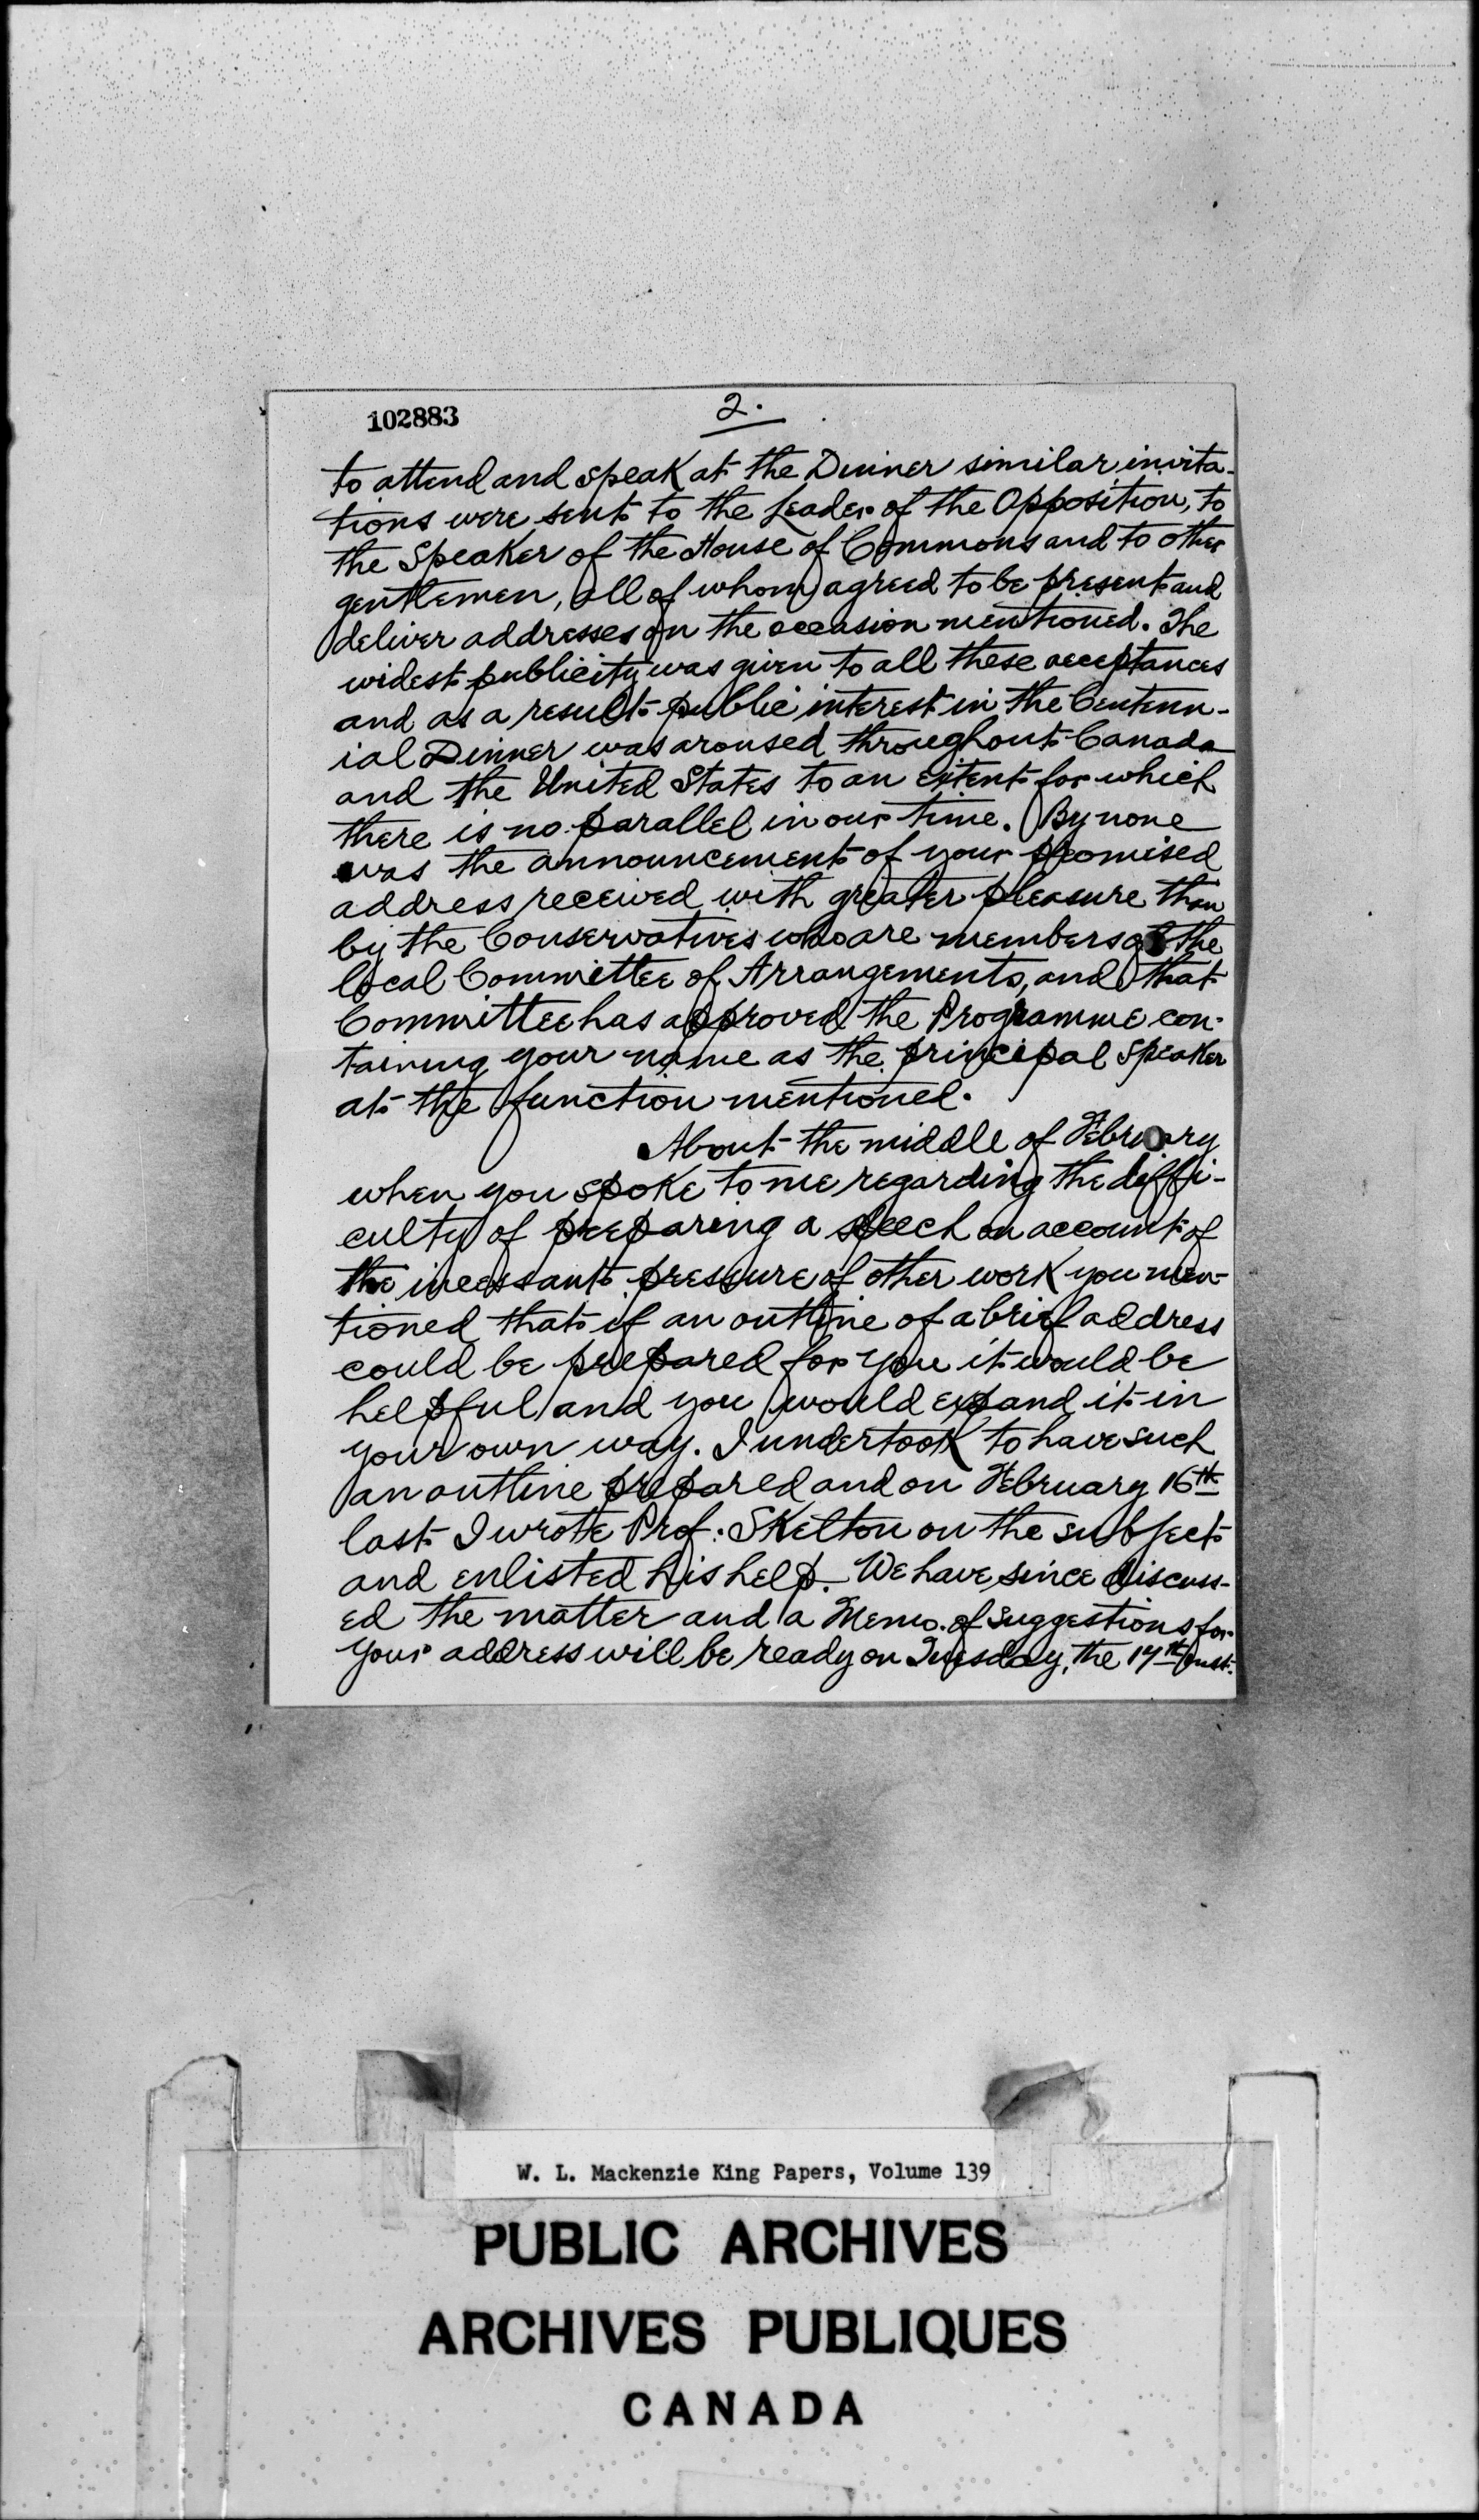 102883
2.
to attend and speak at the Dinner similar invita-
tions were sent to the Leader of the Opposition, to
the Speaker of the House of Commons and to other
gentlemen, all of whom agreed to be present and
deliver addresses on the occasion mentioned. The
widest publicity was given to all these acceptances
and as a result public interest in the Centenn-
ial Dinner was aroused throughout Canada
and the United States to an extent for which
there is no parallel in our time. By none
was the announcement of your promised
address received with greater pleasure than
by the Conservatives who are members of the
local Committee of Arrangements, and that
Committee has approved the Programme con-
taining your name as the principal Speaker
at the function mentioned.
About the middle of February
when you spoke to me regarding the diffi-
culty of preparing a speech on account of
the incessant pressure of other work you men-
tioned that if an outline of a brief address
could be prepared for you it would be
helpful and you would expand it in
your own way. I undertook to have such
an outline prepared and on February 16th
last I wrote Prof. Skelton on the subject
and enlisted his help. We have since discuss-
ed the matter and a Memo. of suggestions for
your address will be ready on Tuesday, the 17th inst.
W. L. Mackenzie King Papers, Volume 139
PUBLIC ARCHIVES
ARCHIVES PUBLIQUES
CANADA